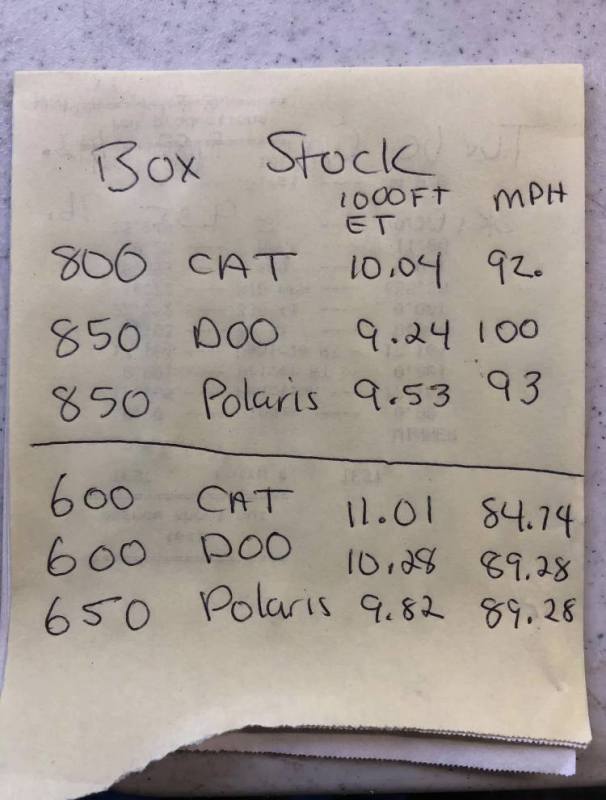 Box Stock
1000FT MPH
ET
800 CAT 10.04 92.
850 DOO 9.24 100
850 Polaris 9.53 93
600 CAT 11.01 84.74
600 DOO 10.28 89.28
650 Polaris 9.82 89.28